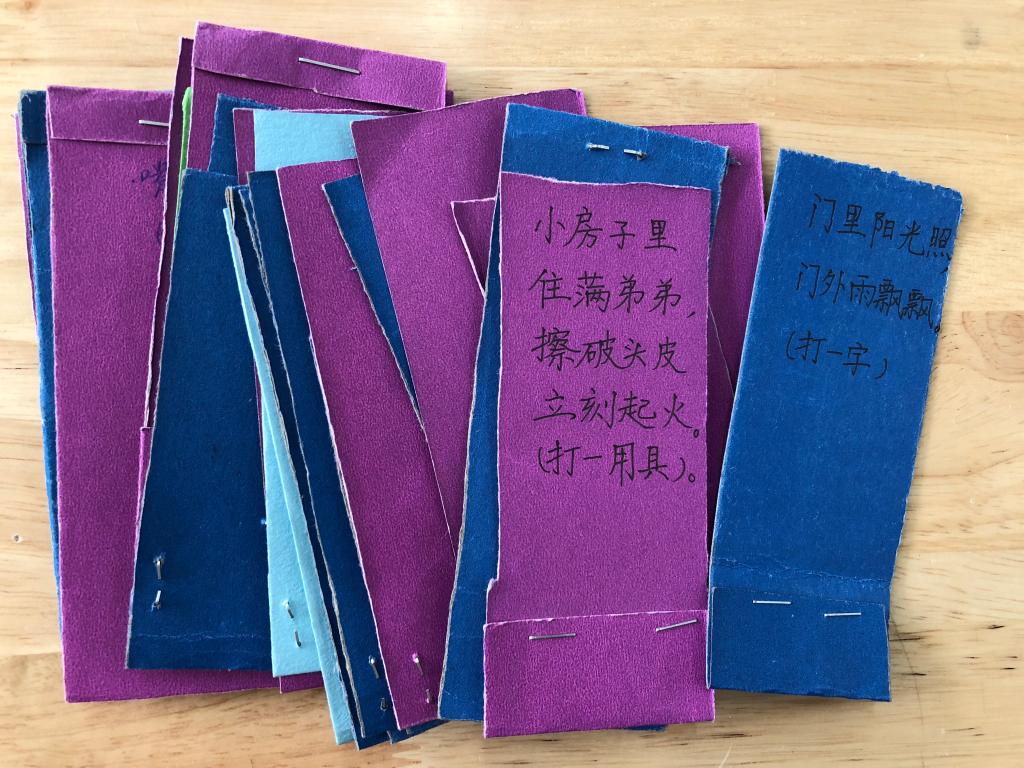 小房子里
住满弟弟，
擦破头皮
立刻起火。
(打一用具)。
门里阳光照，
门外雨飘飘。
(打一字)